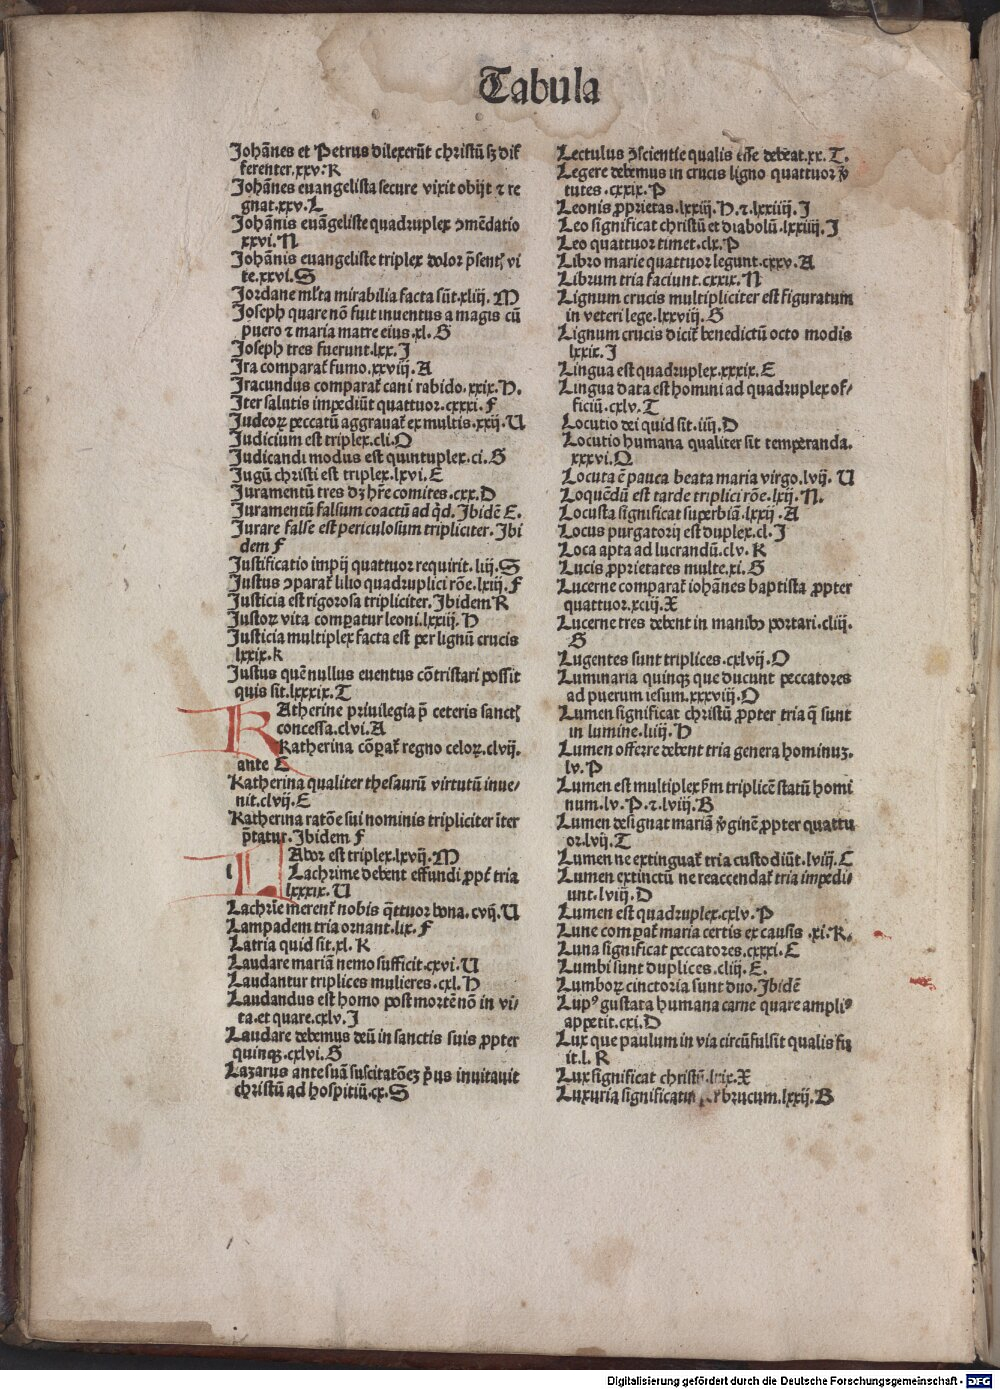 Tabula
Johānes et Petrus dilexerūt christū sꝫ dif
ferenter.xxv.K
Johānes euangelista secure vixit obijt ⁊ re
gnat.xxv.L
Johānis euāgeliste quadruplex ↄmēdatio
xxvi.N
Johānis euangeliste triplex dolor p̄sentꝭ vi
te.xxvi.S
Jordane ml̄ta mirabilia facta sūt.xliij.M
Joseph quare nō fuit inuentus a magis cū
puero ⁊ maria matre eius.xl.G
Joseph tres fuerunt.lxx.J
Ira comparat᷑ fumo.xxviij.A
Iracundus comparat᷑ cani rabido.xxix.H.
Iter salutis impediūt quattuor.cxxxi.F
Judeoꝝ peccatū aggrauat᷑ ex multis.xxij.U
Judicium est triplex.cli.O
Judicandi modus est quintuplex.ci.G
Jugū christi est triplex.lxvi.E
Juramentū tres dꝫ hr̄e comites.cxx.D
Juramentū falsum coactū ad qͥd.Ibidē E.
Jurare false est periculosum tripliciter.Ibi
dem F
Justificatio impij quattuor requirit.liij.S
Justus ↄparat᷑ lilio quadruplici rōe.lxiij.F
Justicia est rigorosa tripliciter.Ibidem R
Justoꝝ vita comparatur leoni.lxxiij.H
Justicia multiplex facta est per lignū crucis
lxxix.K
Justus quē nullus euentus cōtristari possit
quis sit.lxxxix.T
KAtherine priuilegia p̄ ceteris sanctꝭ
concessa.clvi.A
Katherina cōꝑat᷑ regno celoꝝ.clvij.
ante E
Katherina qualiter thesaurū virtutū inue-
nit.clvij.E
Katherina ratōe sui nominis tripliciter īter
p̄tatur.Ibidem F
LAbor est triplex.lxvij.M
Lachrime debent effundi ꝓpt᷑ tria
lxxxix.U
Lachrīe merent᷑ nobis q̄ttuor bona.cvij.U
Lampadem tria ornant.lix.F
Latria quid sit.xl.K
Laudare mariā nemo sufficit.cxvi.U
Laudantur triplices mulieres.cxl.H
Laudandus est homo post mortē nō in vi-
ta.et quare.cxlv.J
Laudare debemus deū in sanctis suis ꝓpter
quinqꝫ.cxlvi.G
Lazarus ante suā suscitatōeꝫ pͥus inuitauit
christū ad hospitiū.cx.S
Lectulus ↄscientie qualis esse debeat.xx.T.
Legere debemus in crucis ligno quattuor v̄
tutes.cxxix.P
Leonis ꝓprietas.lxxiij.H.⁊.lxxiiij.J
Leo significat christū et diabolū.lxxiiij.J
Leo quattuor timet.clx.P
Libro marie quattuor legunt.cxxv.A
Librum tria faciunt.cxxix.N
Lignum crucis multipliciter est figuratum
in veteri lege.lxxviij.G
Lignum crucis dicit᷑ benedictū octo modis
lxxix.J
Lingua est quadruplex.xxxix.E
Lingua data est homini ad quadruplex of-
ficiū.cxlv.T
Locutio dei quid sit.iiij.D
Locutio humana qualiter sit temperanda.
xxxvi.Q
Locuta ē pauca beata maria virgo.lvij.U
Loquēdū est tarde triplici rōe.lxij.N.
Locusta significat superbiā.lxxij.A
Locus purgatorij est duplex.cl.J
Loca apta ad lucrandū.clv.K
Lucis ꝓprietates multe.xi.G
Lucerne comparat᷑ iohānes baptista ꝓpter
quattuor.xciij.X
Lucerne tres debent in manibꝰ portari.cliij.
G
Lugentes sunt triplices.cxlvij.O
Luminaria quinqꝫ que ducunt peccatores
ad puerum iesum.xxxviij.O
Lumen significat christū ꝓpter tria q̄ sunt
in lumine.liiij.H
Lumen offerre debent tria genera hominuꝫ.
lv.P
Lumen est multiplex ẜm triplicē statū homi
num.lv.P.⁊.lviij.B
Lumen designat mariā v̄ginē ꝓpter quattu
or.lvij.T
Lumen ne extinguat᷑ tria custodiūt.lviij.C
Lumen extinctū ne reaccendat᷑ tria impedi-
unt.lviij.D
Lumen est quadruplex.cxlv.P
Lune comꝑat᷑ maria certis ex causis.xi.K.
Luna significat peccatores.cxxxi.C
Lumbi sunt duplices.cliij.E.
Lumboꝝ cinctoria sunt duo.Ibidē
Lupꝰ gustata humana carne quare ampliꝰ
appetit.cxi.D
Lux que paulum in via circūfulsit qualis fu
it.l.R
Lux significat christū.lxix.X
Luxuria significatur per brucum.lxxij.B
Digitalisierung gefördert durch die Deutsche Forschungsgemeinschaft - DFG